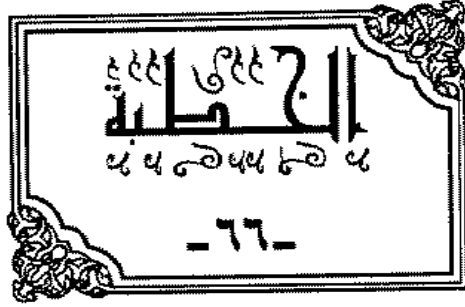 الخطبة
-٦٦-